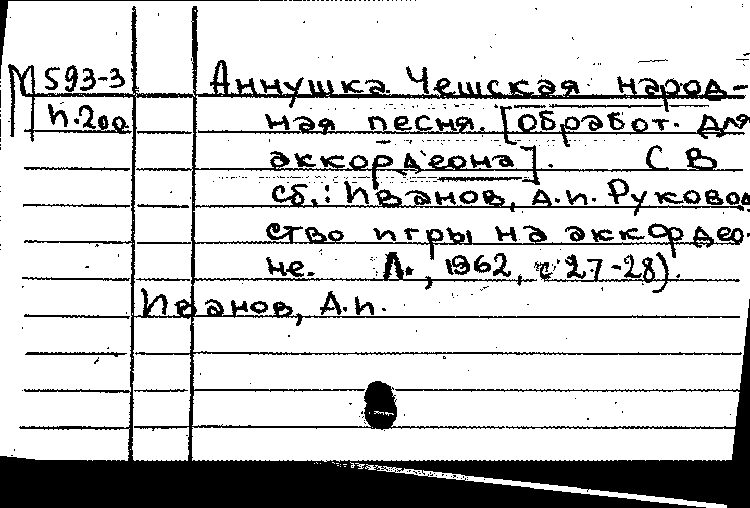 М 593-3 Аннушка. Чешская народ-
п.200 ная песня. [обработ. для
аккордеона]. (В
сб.: Иванов, А.П. Руковод
ство игры на аккордео-
не. Л., 1962, с 27-28).
Иванов, А.П.